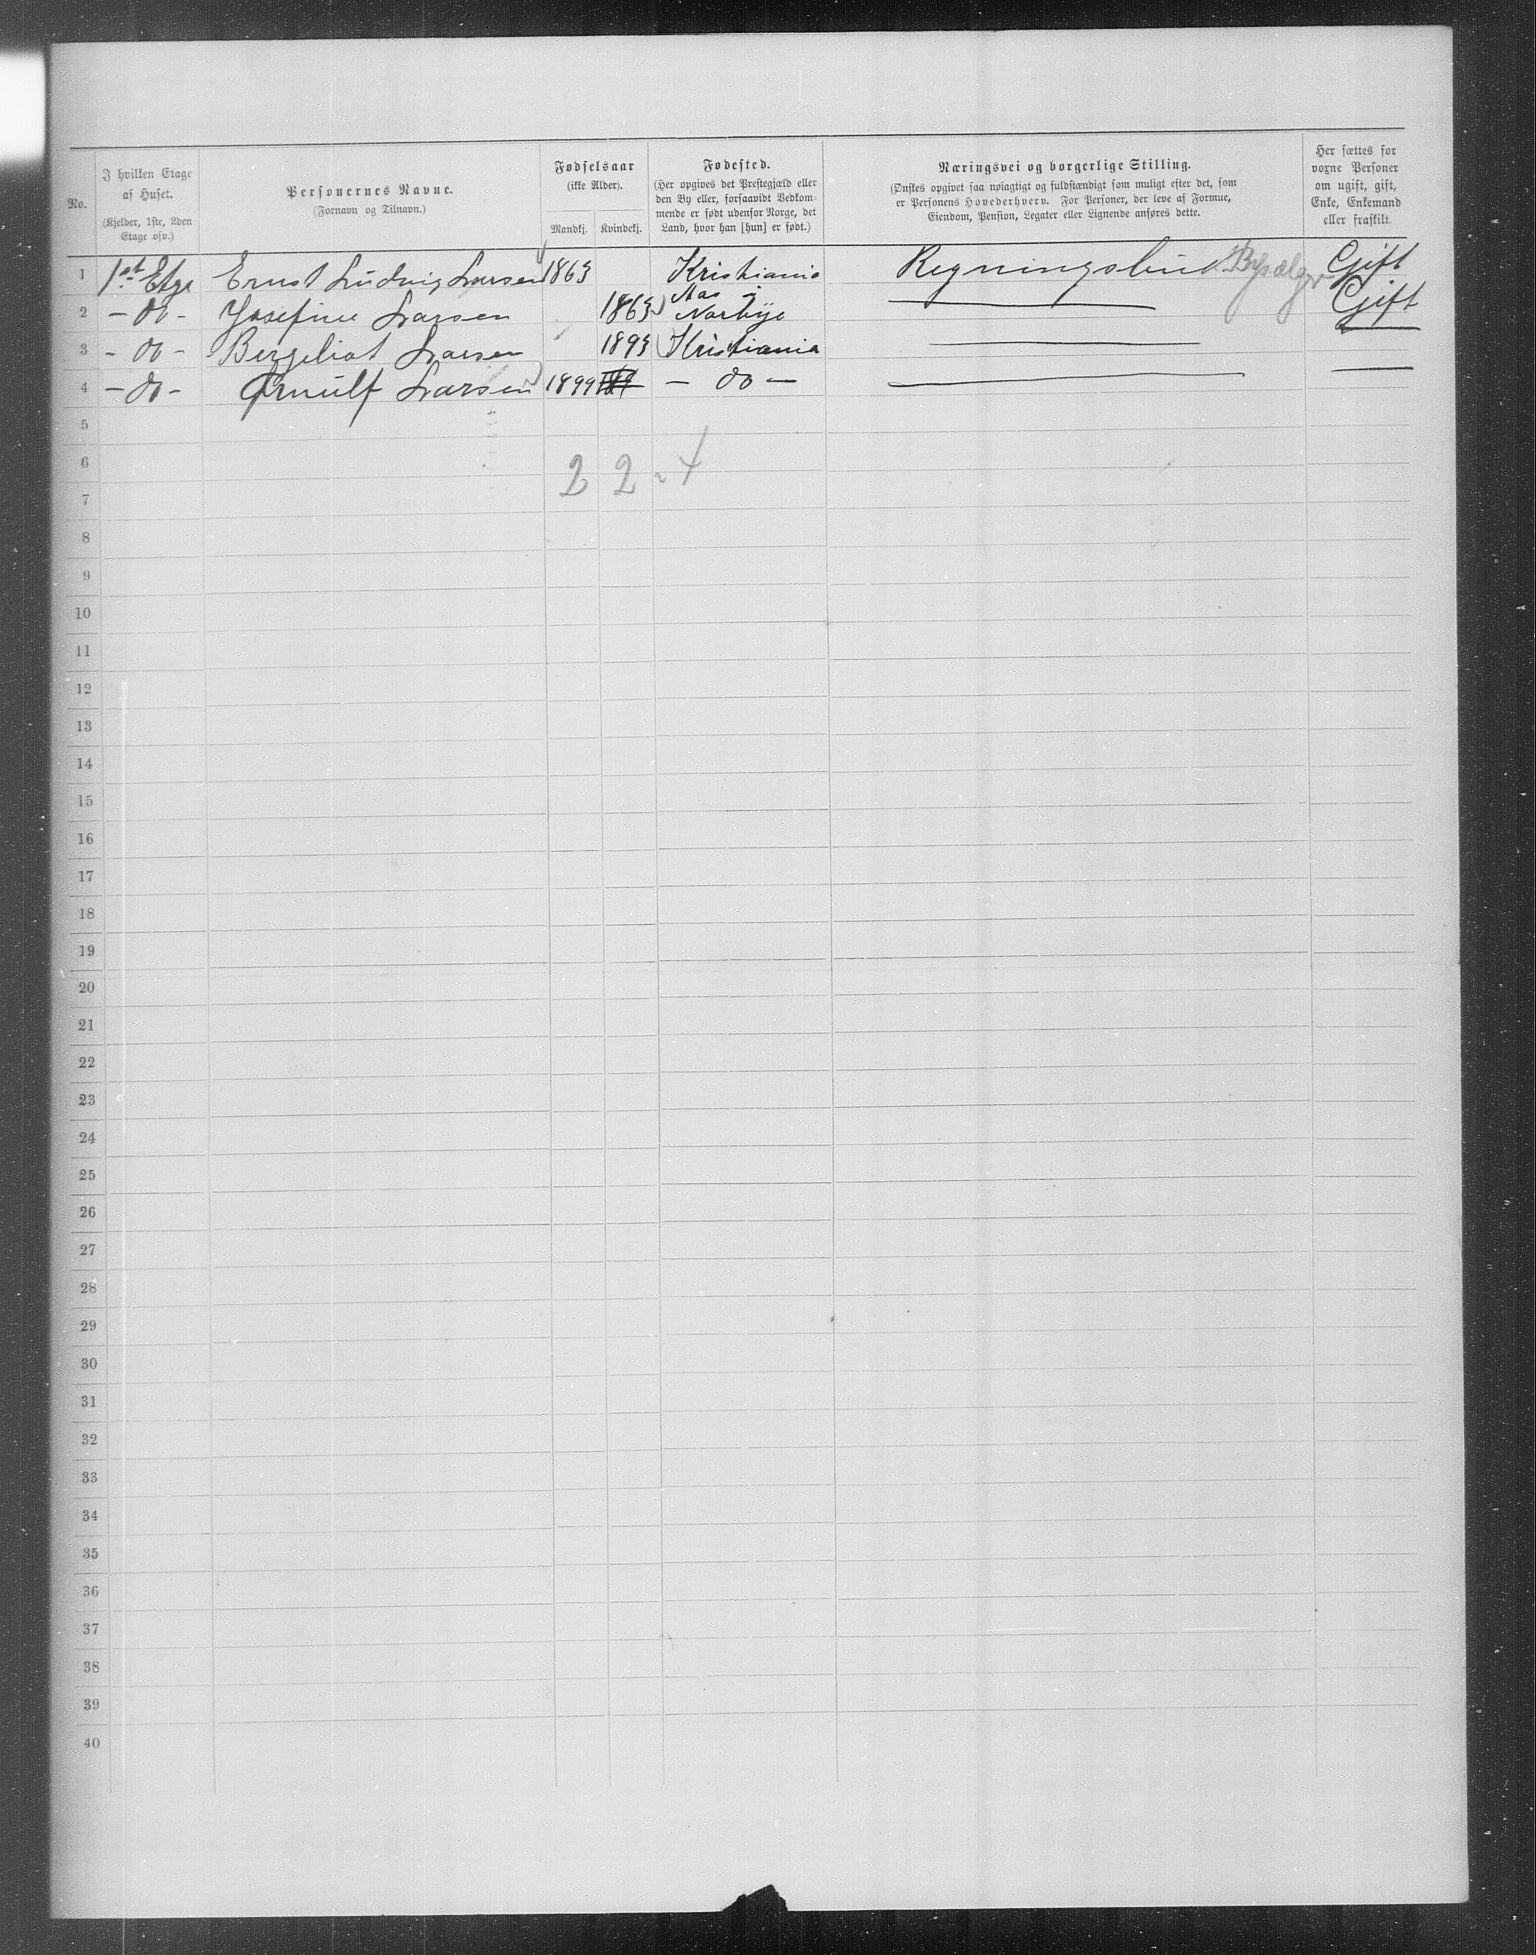 No.
I hvilken Etage af Huset.
(Kjelder, 1ste, 2den Etage osv.)
Personernes Navne.
(Fornavn og Tilnavn.)
Fødselsaar
(ikke Alder).
Mandkj. Kvindekj.
Fødested.
(Her opgives det Præstegjæld eller
den By eller, forsaavidt Vedkom-
mende er født udenfor Norge, det
Land, hvor han [hun] er født.)
Næringsvei og borgerlige Stilling.
(Ønskes opgivet saa nøiagtigt og fuldstændigt som muligt efter det, som
er Personens Hovederhverv. For Personer, der leve af Formue,
Eiendom, Pension, Legater eller Lignende anføres dette.
Her sættes for
voxne Personer
om ugift, gift,
Enke, Enkemand
eller fraskilt.
1 1st Etge Ernst Ludvig Larsen 1863 Kristiania Regningsbud Gift
2 – do – Josefine Larsen 1863 Aas i Norbye Gift
3 – do – Bergeliot Larsen 1893 Kristiania
4 – do – Ørnulf Larsen 1899 – do –
5
6
2 2 4
7
8
9
10
11
12
13
14
15
16
17
18
19
20
21
22
23
24
25
26
27
28
29
30
31
32
33
34
35
36
37
38
39
40